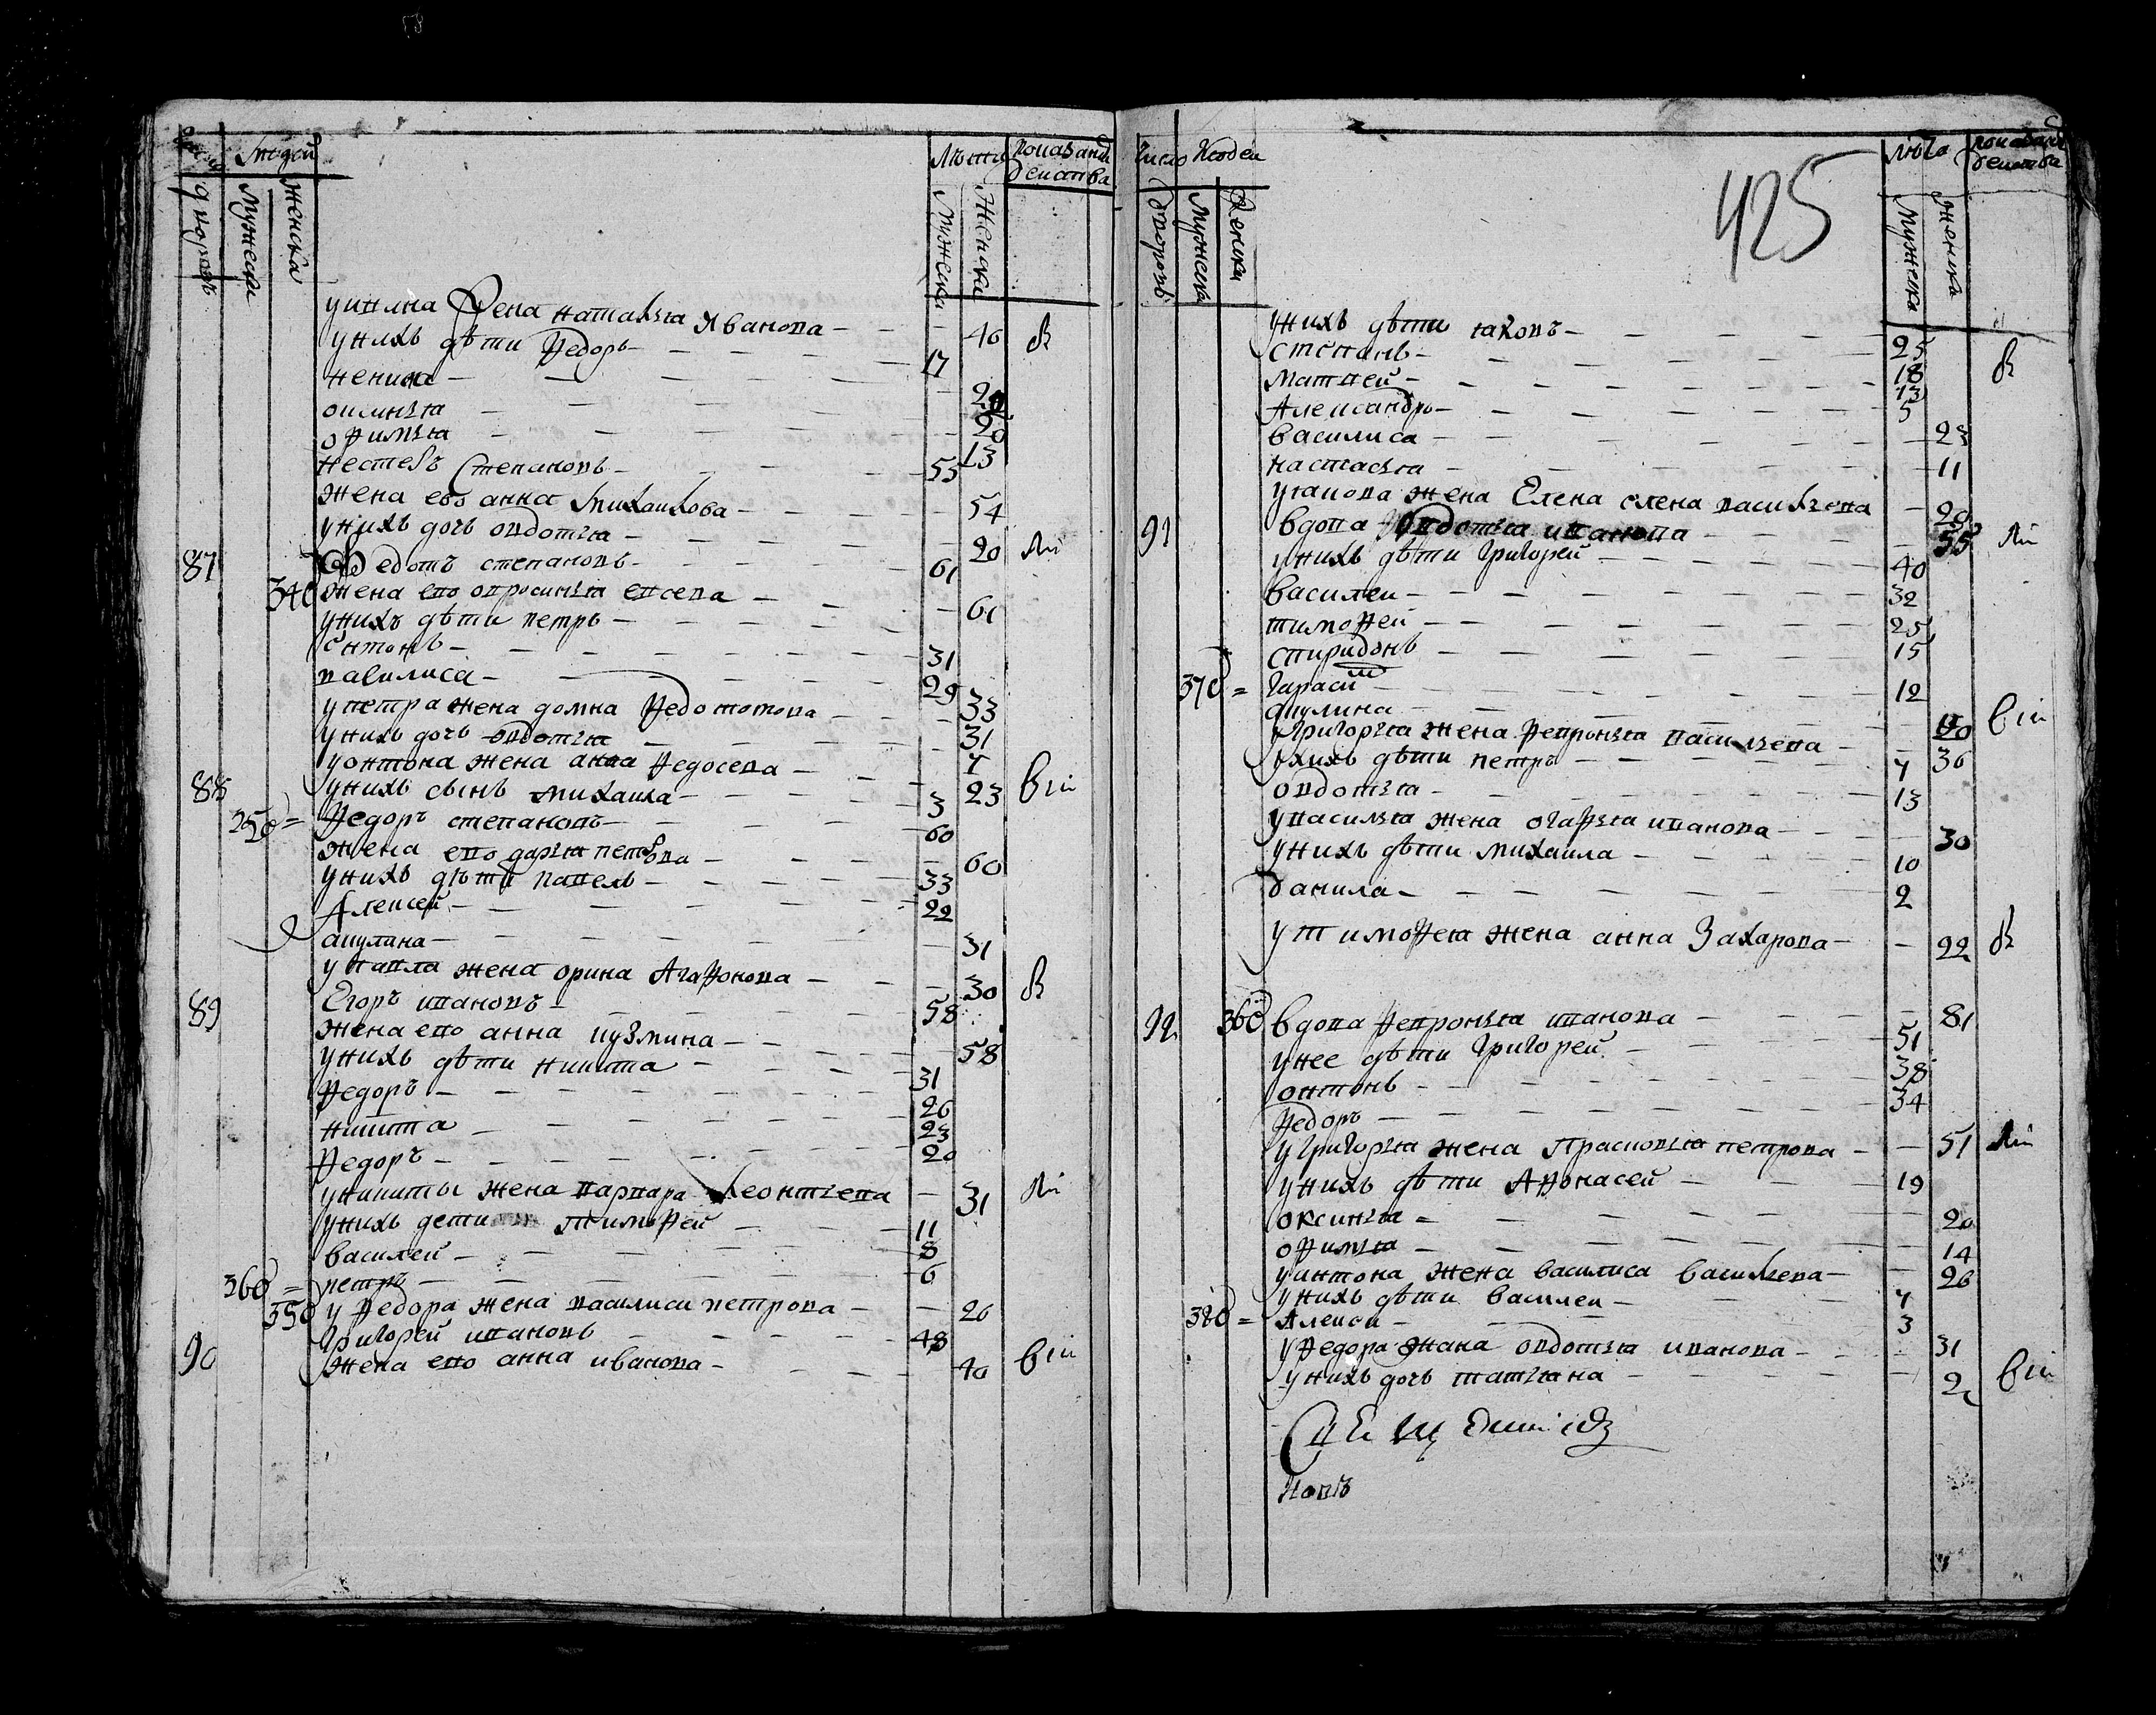 Людей
Лѣта показани
дворовъ
Мужеска
женска
Мужеска
Женска
жена наталья Иванова 46
у нихъ дѣти Федоръ 17
оксинья 20
офимья 13
Нестеръ Степановъ 55
жена ево анна Михаилова 54
у нихъ дочь овдотья 20
87 Федотъ степановъ 61
340 жена ево опросинья 61
у нихъ дѣти петръ 31
онтонъ 29
василиса 33
у петра жена домна Федотова 31
у нихъ дочь овдотья 7
у онтона жена анна Федосева 23
у нихъ сынъ михаила 3
88 350 = Федоръ степановъ 60
жена ево дарья петрова 60
у нихъ дѣти павелъ 33
Алексей 22
акулина 31
у павла жена орина Агафонова 30
89 Егоръ ивановъ 58
жена ево анна кузмина 58
у нихъ дѣти никита 31
Федоръ 26
никита 23
Федоръ 20
у никиты жена варвара Леонтьева 31
у нихъ дети тимофей 11
василей 8
360 = петръ 6
350 у Федора жена василиса петрова 26
90 Григорей ивановъ 48
жена ево анна иванова 40
Число Людей
лѣта показани
425
дворовъ
Мужеска
Женска
Мужеска
женска
у нихъ дѣти яковъ 25
степанъ 18
матвей 13
Александръ 5
василиса 23
настасья 11
у якова жена Елена елена васильева 20
91 вдова овдотья иванова 55
у нихъ дѣти Григорей 40
василеи 32
тимофей 25
спиридонъ 15
370 = Гарасим 12
акулина 40
у Григорья жена Февронья васильева 36
у нихъ дѣти петръ 7
овдотья 13
у василья жена огафья иванова 30
у нихъ дѣти михаила 10
данила 2
у тимофея жена анна Захарова 22
92 360 вдова Февронья иванова 81
у нее дѣти Григорей 51
онтонъ 38
Федоръ 34
у Григорья жена Прасковья петрова 51
у нихъ дѣти Афонасей 19
оксинья 20
офимья 14
у антона жена василиса васильева 26
у нихъ дѣти василеи 7
380 = Алекси 3
у Федора жана овдотья иванова 31
у нихъ дочь татьяна 2